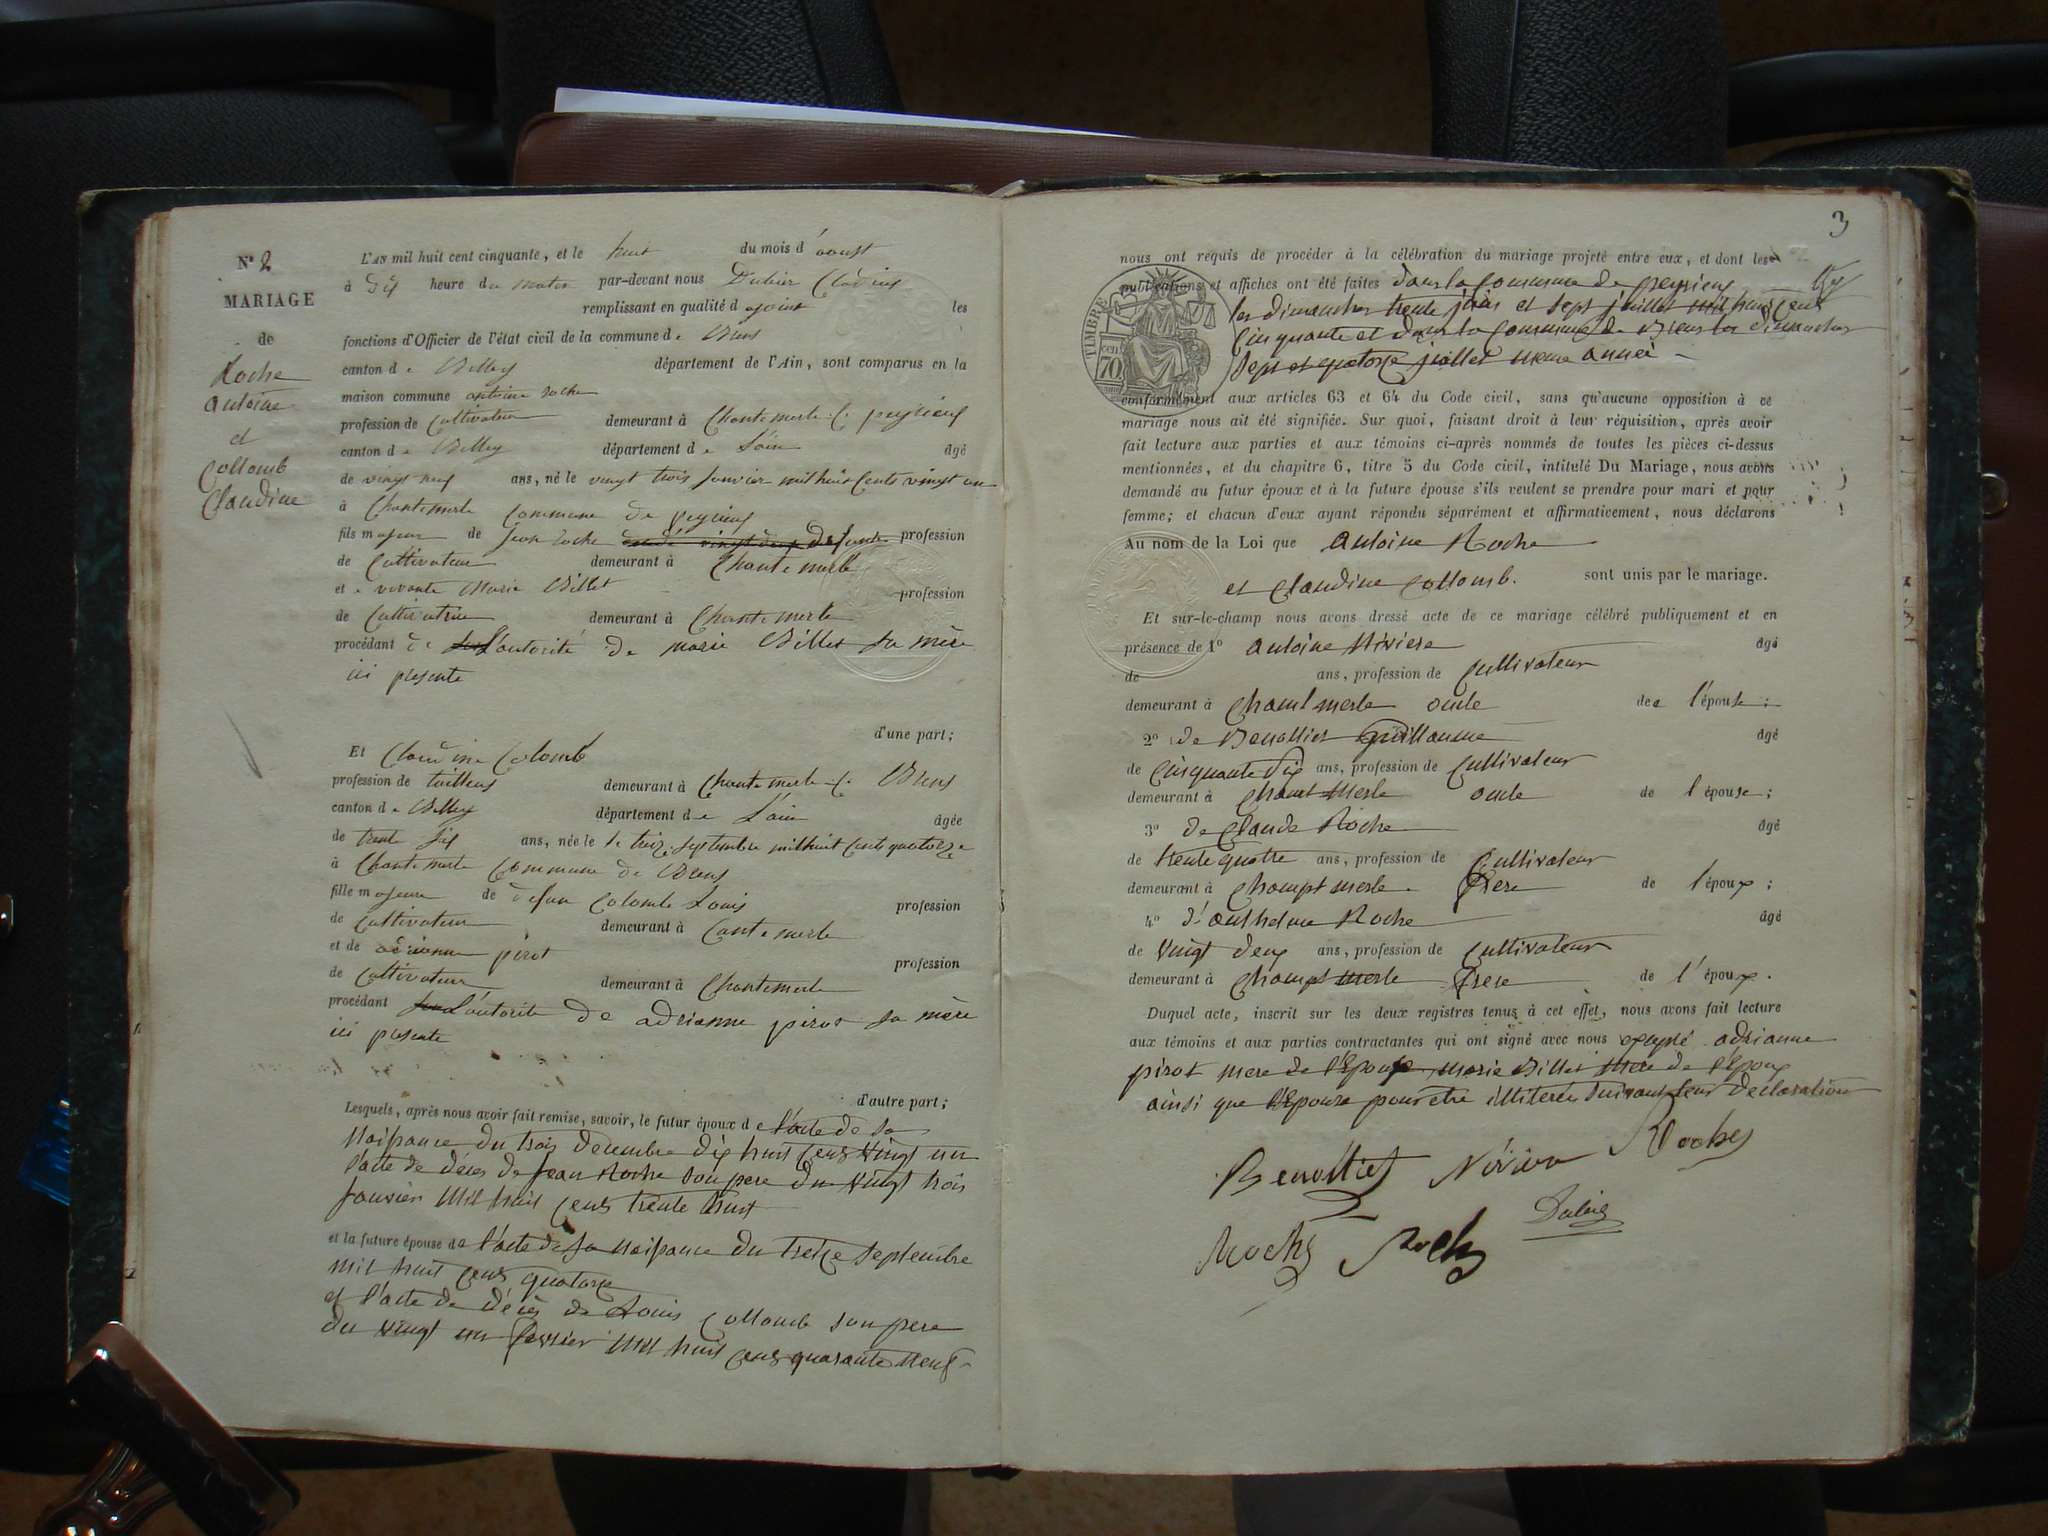 N° 2
MARIAGE
de
Roche
antoine
et
Collomb
Claudine
L'AN mil huit cent cinquante, et le huit du mois d'aoust
à dix heure du matin par-devant nous Dubier
remplissant en qualité d ajoint les
fonctions d'Officier de l'état civil de la commune de Brens
canton de Belley département de l'Ain, sont comparus en la
maison commune antoine roche
profession de Cultivateur demeurant à Chantemerle C. peyrieux
canton de Belley département de L'ain âgé
de vingt neuf ans, né le vingt trois Janvier mil huit Cents vingt un
à Chantemerle Commune de peyrieux
fils majeur de Jean roche défunt profession
de Cultivateur demeurant à Chantemerle
et de vivante Marie Billet profession
de Cultivatrice demeurant à Chantemerle
procédant de L'autorité de marie Billet sa mère
ici presente
d'une part;
Et Claudine Colomb
profession de tailleus demeurant à Chantemerle C. Brens
canton de Belley département de L'ain âgée
de trente six ans, née le le treize septembre mil huit Cents quatorze
à Chantemerle Commune de Brens
fille majeure de défun Colomb Louis profession
de Cultivateur demeurant à Cantemerle
et de adrianne pirot profession
de Cultivateur demeurant à Chantemerle
procédant L'autorité de adrianne pirot sa mère
ici presente
d'autre part;
Lesquels, après nous avoir fait remise, savoir, le futur époux de l'acte de sa
Naissance du trois decembre dix huit cens vingt un
l'acte de décès de Jean Roche son pere du vingt trois
Janvier mil huit cens trente huit
et la future épouse de l'acte de sa naissance du treize septembre
mil huit cens quatorze
et l'acte de décès de Louis Collomb son pere
du vingt un fevrier mil huit cens quarante neuf
3
nous ont requis de procéder à la célébration du mariage projeté entre eux, et dont les
publications et affiches ont été faites dans la Commune de peyrieux
les dimanches trente juin et sept juillet mil huit cens
cinquante et dans la Commune de Brens les dimanches
sept et quatorze juillet meme année
TIMBRE
70 cen
conformément aux articles 63 et 64 du Code civil, sans qu'aucune opposition à ce
mariage nous ait été signifiée. Sur quoi, faisant droit à leur réquisition, après avoir
fait lecture aux parties et aux témoins ci-après nommés de toutes les pièces ci-dessus
mentionnées, et du chapitre 6, titre 5 du Code civil, intitulé Du Mariage, nous avons
demandé au futur époux et à la future épouse s'ils veulent se prendre pour mari et pour
femme; et chacun d'eux ayant répondu séparément et affirmativement, nous déclarons
Au nom de la Loi que antoine Roche
et Claudine Collomb. sont unis par le mariage.
Et sur-le-champ nous avons dressé acte de ce mariage célébré publiquement et en
présence de 1° antoine Niviere âgé
de ans, profession de Cultivateur
demeurant à Chantmerle oncle de l'épouse;
2° de Benolliet Guillaume âgé
de Cinquante dix ans, profession de Cultivateur
demeurant à Chantmerle oncle de l'épouse;
3° de Claude Roche âgé
de trente quatre ans, profession de Cultivateur
demeurant à Champtmerle frere de l'époux;
4° d'anthelme Roche âgé
de vingt deux ans, profession de Cultivateur
demeurant à Champtmerle frere de l'époux.
Duquel acte, inscrit sur les deux registres tenus à cet effet, nous avons fait lecture
aux témoins et aux parties contractantes qui ont signé avec nous excepté adrianne
pirot mere de l'Epouse, marie Billet mere de l'Epoux
ainsi que l'Epouse pour etre illiterées suivant leur declaration
Benolliet Nivière Roche
Roche Roche Dubier